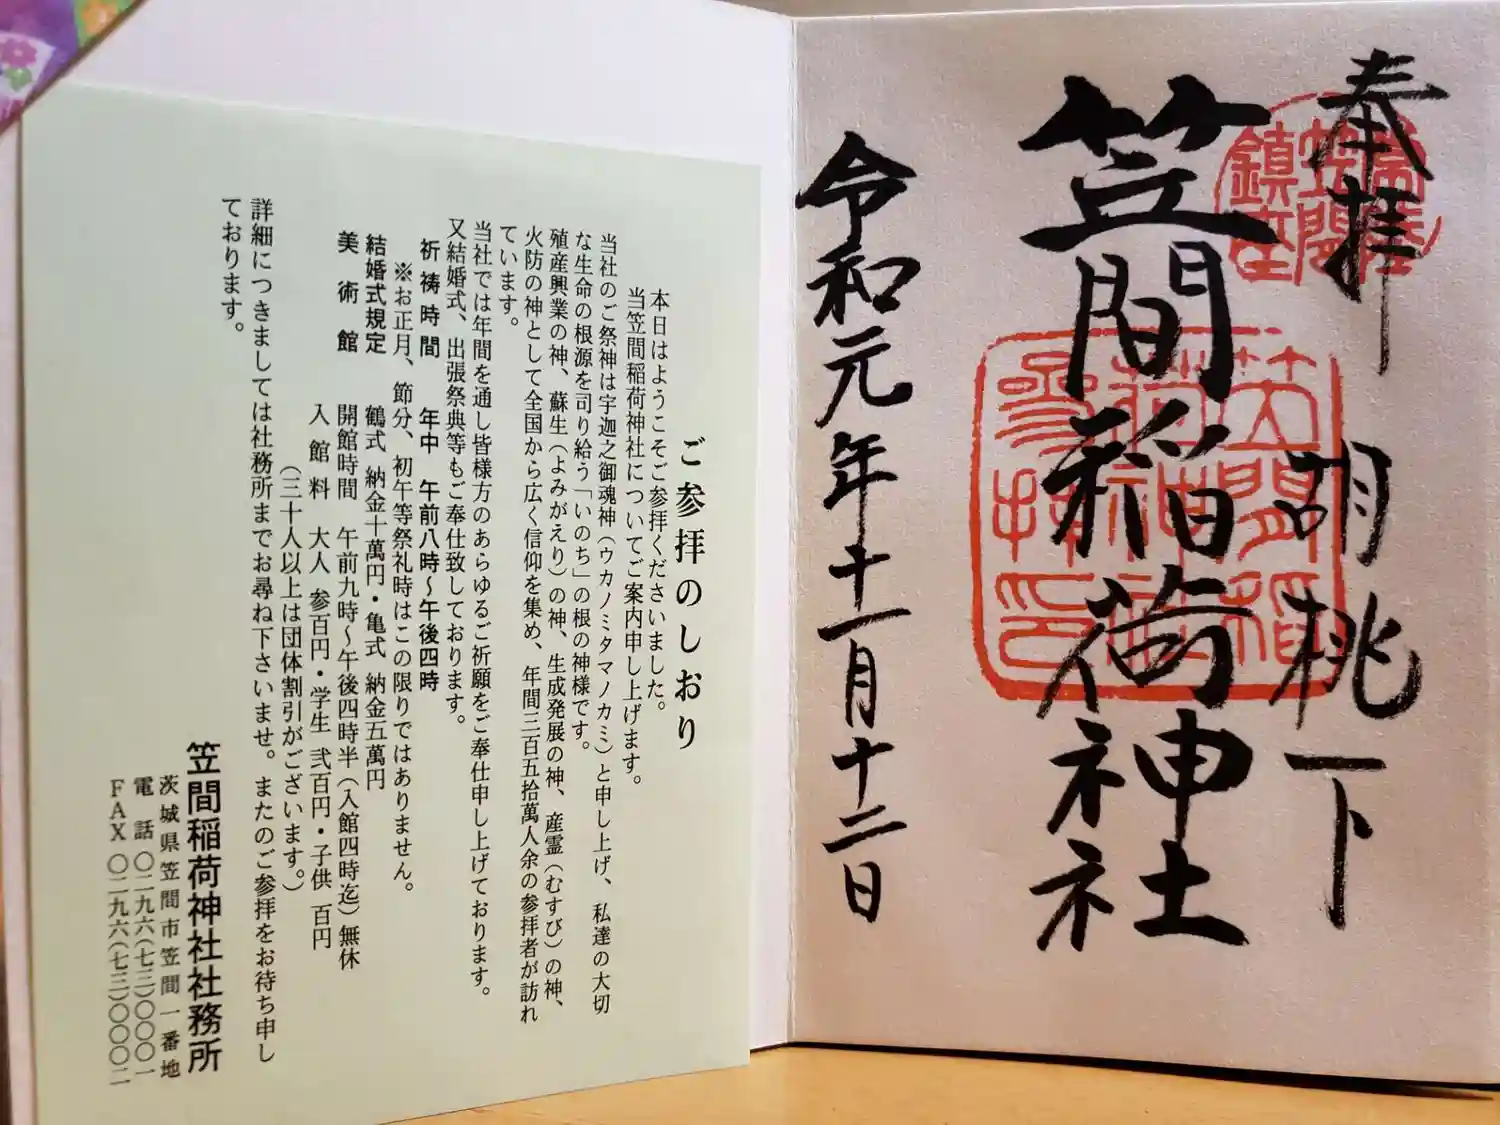 奉拝
胡桃下
笠間稲荷神社
令和元年十一月十二日
常陸
笠間
鎮座
笠間稲
荷神社
参拝印
ご参拝のしおり
本日はようこそご参拝くださいました。
当笠間稲荷神社についてご案内申し上げます。
当社のご祭神は宇迦之御魂神(ウカノミタマノカミ)と申し上げ、私達の大切
な生命の根源を司り給う「いのち」の根の神様です。
殖産興業の神、蘇生(よみがえり)の神、生成発展の神、産霊(むすび)の神、
火防の神として全国から広く信仰を集め、年間三百五拾萬人余の参拝者が訪れ
ています。
当社では年間を通し皆様方のあらゆるご祈願をご奉仕申し上げております。
又結婚式、出張祭典等もご奉仕致しております。
祈祷時間 年中 午前八時〜午後四時
※お正月、節分、初午等祭礼時はこの限りではありません。
結婚式規定 鶴式 納金十萬円・亀式 納金五萬円
美術館 開館時間 午前九時〜午後四時半(入館四時迄)無休
入館料 大人 参百円・学生 弐百円・子供 百円
(三十人以上は団体割引がございます。)
詳細につきましては社務所までお尋ね下さいませ。またのご参拝をお待ち申し
ております。
笠間稲荷神社社務所
茨城県笠間市笠間一番地
電話 〇二九六(七三)〇〇〇一
FAX 〇二九六(七三)〇〇〇二